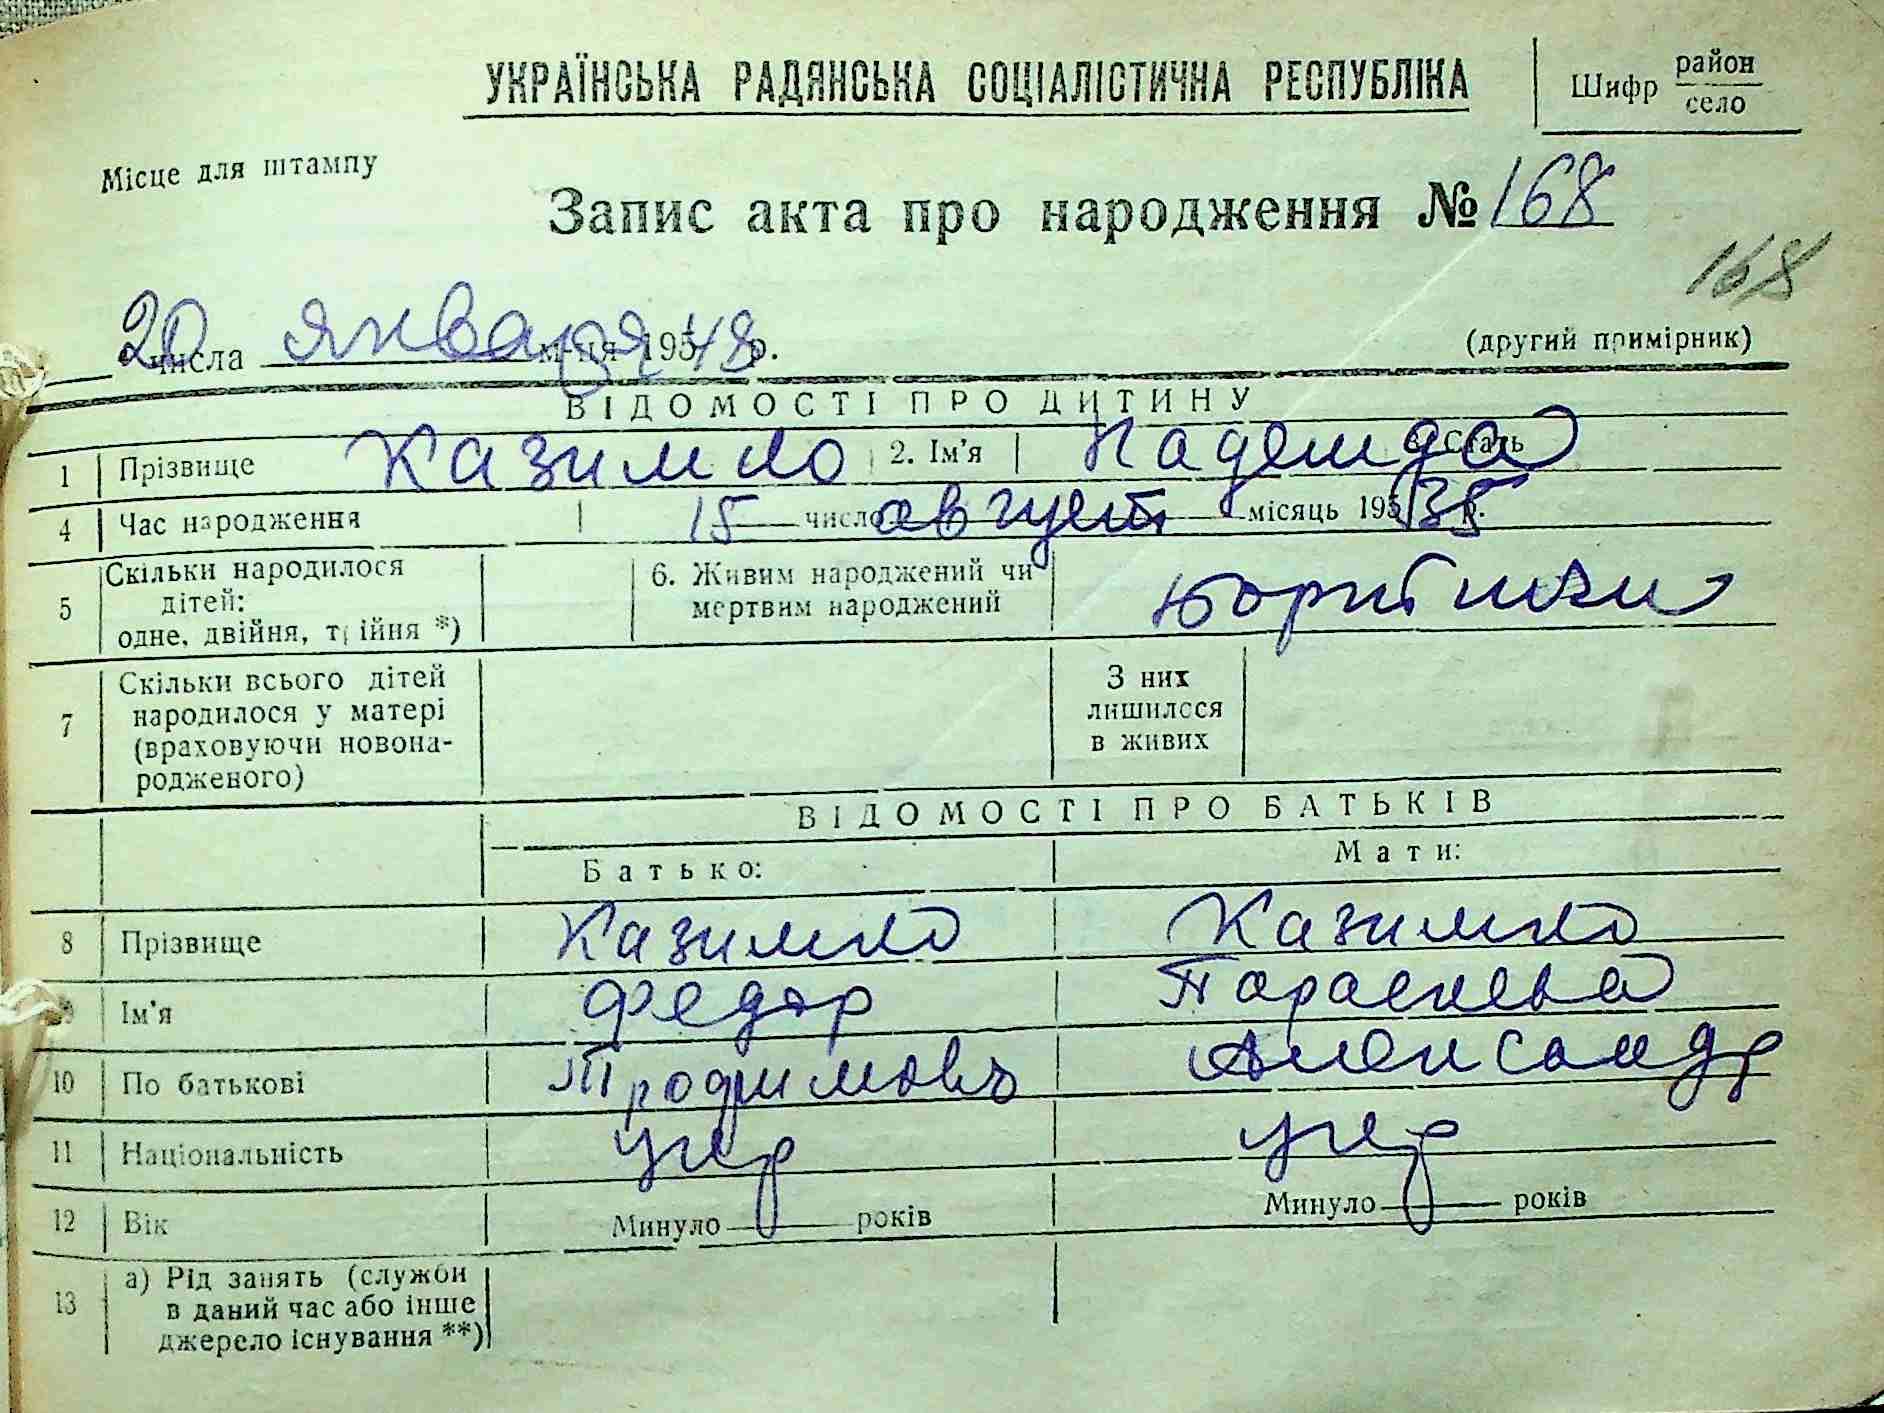 УКРАЇНСЬКА РАДЯНСЬКА СОЦІАЛІСТИЧНА РЕСПУБЛІКА
Шифр район
село
Місце для штампу
Запис акта про народження № 168
168
20 числа января м-ця 195 48 р.
(другий примірник)
ВІДОМОСТІ ПРО ДИТИНУ
1 Прізвище Казимко 2. Ім'я Надежда 3. Стать
4 Час народження 15 число август місяць 195 35 р.
5 Скільки народилося дітей: одне, двійня, трійня *)
6. Живим народжений чи мертвим народжений
7 Скільки всього дітей народилося у матері (враховуючи новонародженого)
З них лишилося в живих
ВІДОМОСТІ ПРО БАТЬКІВ
Батько: Мати:
8 Прізвище Казимко Казимко
9 Ім'я Федор Параскева
10 По батькові Трофимовъ Александр
11 Національність укр укр
12 Вік Минуло років Минуло років
13 а) Рід занять (служби в даний час або інше джерело існування **)